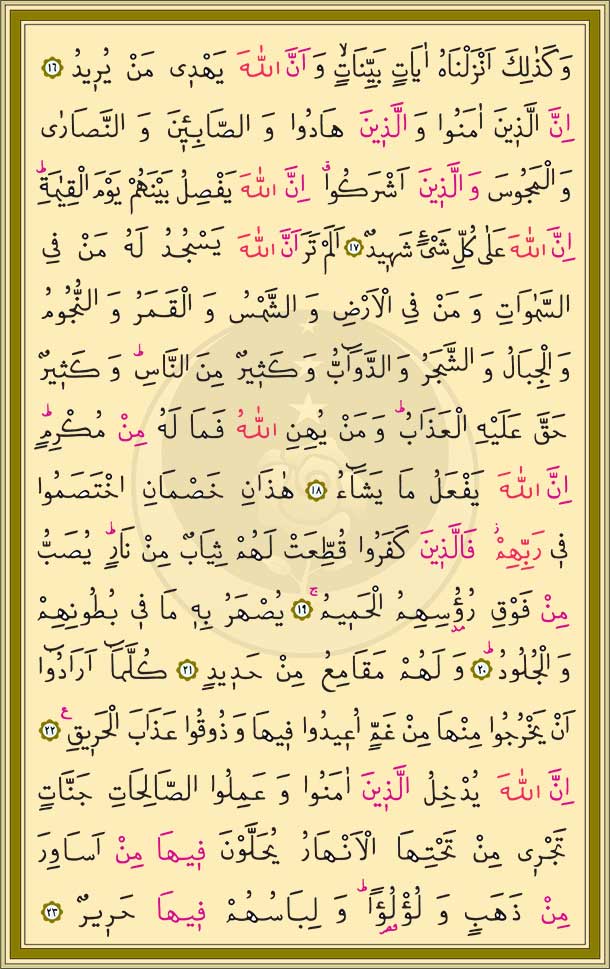 وَكَذٰلِكَ اَنْزَلْنَاهُ اٰيَاتٍ بَيِّنَاتٍۙ وَ اَنَّ اللّٰهَ يَهْدٖى مَنْ يُرٖيدُ ﴿١٦﴾
اِنَّ الَّذٖينَ اٰمَنُوا وَ الَّذٖينَ هَادُوا وَ الصَّابِـٖٔينَ وَ النَّصَارٰى
وَ الْمَجُوسَ وَ الَّذٖينَ اَشْرَكُواۗ اِنَّ اللّٰهَ يَفْصِلُ بَيْنَهُمْ يَوْمَ الْقِيٰمَةِۜ
اِنَّ اللّٰهَ عَلٰى كُلِّ شَىْءٍ شَهٖيدٌ ﴿١٧﴾ اَلَمْ تَرَ اَنَّ اللّٰهَ يَسْجُدُ لَهُ مَنْ فِى
السَّمٰوَاتِ وَ مَنْ فِى الْاَرْضِ وَ الشَّمْسُ وَ الْقَمَرُ وَ النُّجُومُ
وَ الْجِبَالُ وَ الشَّجَرُ وَ الدَّوَٓابُّ وَ كَثٖيرٌ مِنَ النَّاسِۜ وَ كَثٖيرٌ
حَقَّ عَلَيْهِ الْعَذَابُۜ وَ مَنْ يُهِنِ اللّٰهُ فَمَا لَهُ مِنْ مُكْرِمٍۜ
اِنَّ اللّٰهَ يَفْعَلُ مَا يَشَٓاءُ ﴿١٨﴾ هٰذَانِ خَصْمَانِ اخْتَصَمُوا
فٖى رَبِّهِمْۘ فَالَّذٖينَ كَفَرُوا قُطِّعَتْ لَهُمْ ثِيَابٌ مِنْ نَارٍۜ يُصَبُّ
مِنْ فَوْقِ رُؤُسِهِمُ الْحَمٖيمُۚ ﴿١٩﴾ يُصْهَرُ بِهٖ مَا فٖى بُطُونِهِمْ
وَ الْجُلُودُۜ ﴿٢٠﴾ وَ لَهُمْ مَقَامِعُ مِنْ حَدٖيدٍ ﴿٢١﴾ كُلَّمَٓا اَرَادُٓوا
اَنْ يَخْرُجُوا مِنْهَا مِنْ غَمٍّ اُعٖيدُوا فٖيهَا وَ ذُوقُوا عَذَابَ الْحَرٖيقِ ع ﴿٢٢﴾
اِنَّ اللّٰهَ يُدْخِلُ الَّذٖينَ اٰمَنُوا وَ عَمِلُوا الصَّالِحَاتِ جَنَّاتٍ
تَجْرٖى مِنْ تَحْتِهَا الْاَنْهَارُ يُحَلَّوْنَ فٖيهَا مِنْ اَسَاوِرَ
مِنْ ذَهَبٍ وَ لُؤْلُؤًاۜ وَ لِبَاسُهُمْ فٖيهَا حَرٖيرٌ ﴿٢٣﴾